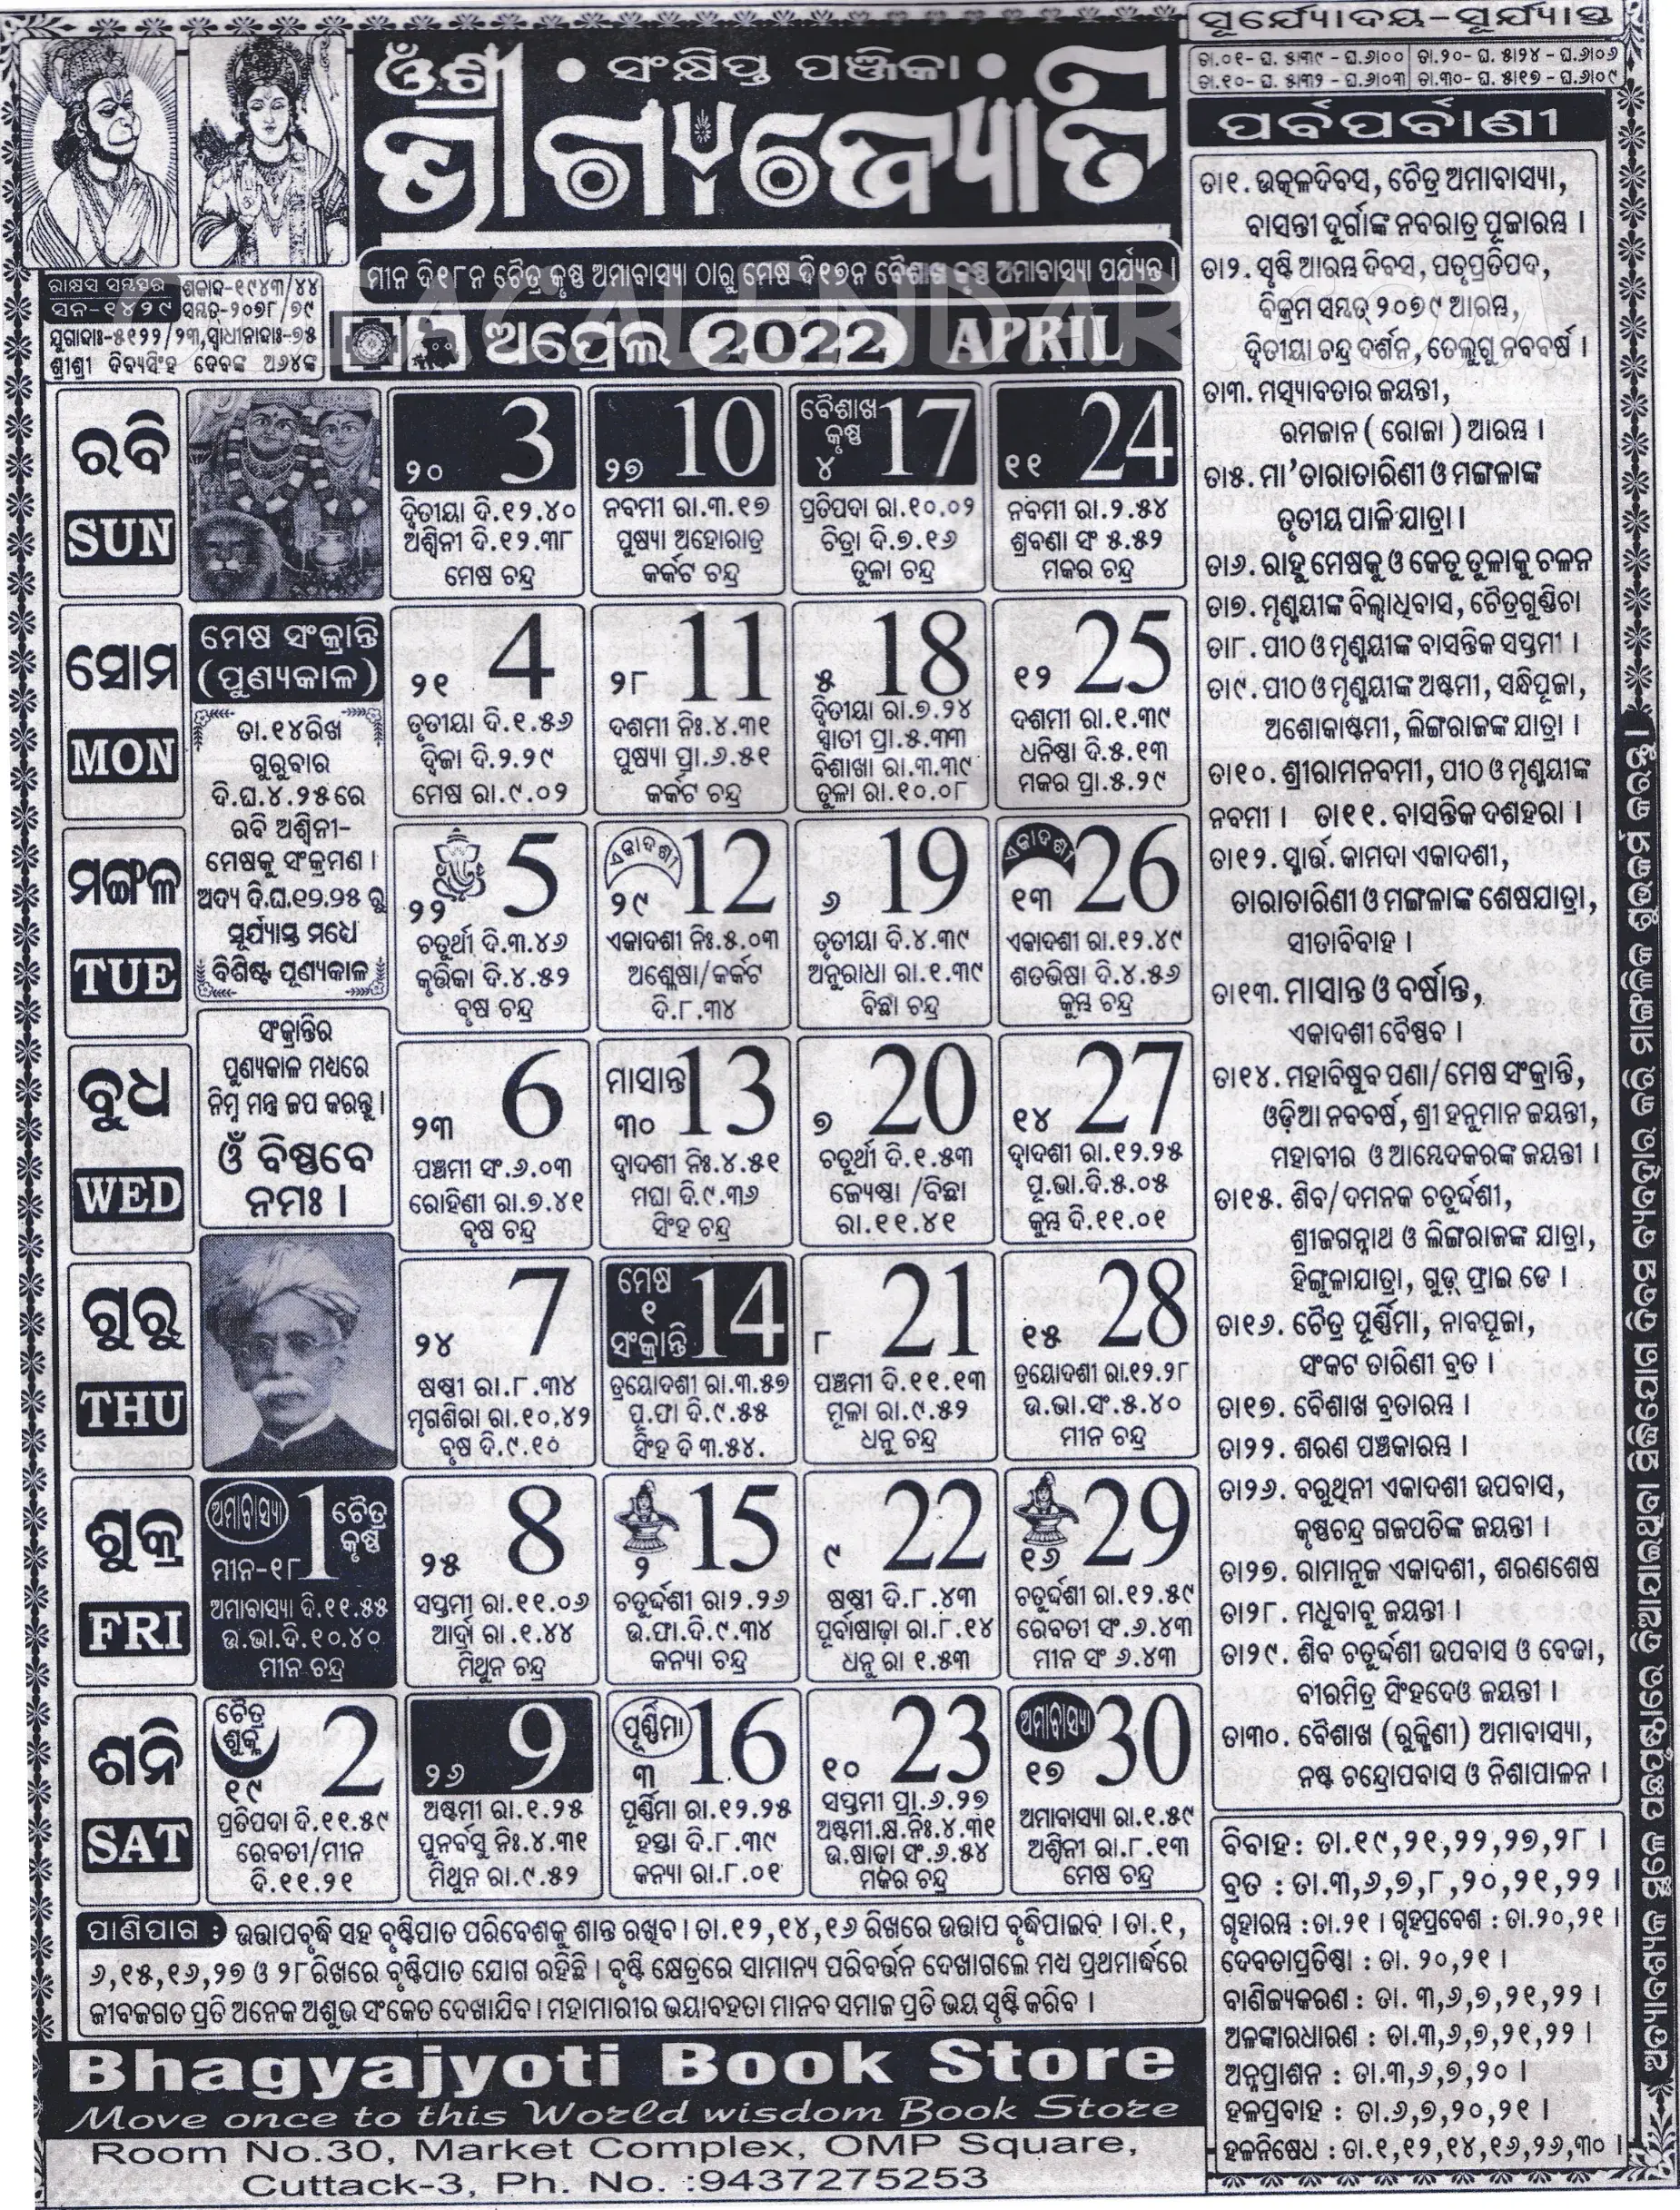 ଓଁଶ୍ରୀ • ସଂକ୍ଷିପ୍ତ ପଞ୍ଜିକା •
ଭାଗ୍ୟଜ୍ୟୋତି
ମୀନ ଦି୧୮ନ ଚୈତ୍ର କୃଷ୍ଣ ଅମାବାସ୍ୟା ଠାରୁ ମେଷ ଦି୧୭ନ ବୈଶାଖ କୃଷ୍ଣ ଅମାବାସ୍ୟା ପର୍ଯ୍ୟନ୍ତ ।
ରାକ୍ଷସ ସମ୍ବତ୍ସର
ସନ-୧୪୨୯
ଶକାବ୍ଦ-୧୯୪୩/୪୪
ସମ୍ବତ-୨୦୭୮/୭୯
ଯୁଗାବ୍ଦାଃ-୫୧୨୨/୨୩,ସ୍ବାଧୀନାବ୍ଦାଃ-୭୫
ଶ୍ରୀଶ୍ରୀ ଦିବ୍ୟସିଂହ ଦେବଙ୍କ ଅ୬୪ଙ୍କ
ଅପ୍ରେଲ 2022 APRIL
ସୂର୍ଯ୍ୟୋଦୟ-ସୂର୍ଯ୍ୟାସ୍ତ
ତା.୦୧- ଘ. ୫ା୩୯ - ଘ.୬ା୦୦ ତା.୨୦- ଘ. ୫ା୨୪ - ଘ.୬ା୦୬
ତା.୧୦- ଘ. ୫ା୩୨ - ଘ.୬ା୦୩ ତା.୩୦- ଘ. ୫ା୧୭ - ଘ.୬ା୦୯
ରବି
SUN
3
୨୦
ଦ୍ୱିତୀୟା ଦି.୧୨.୪୦
ଅଶ୍ୱିନୀ ଦି.୧୨.୩୮
ମେଷ ଚନ୍ଦ୍ର
10
୨୭
ନବମୀ ରା.୩.୧୭
ପୁଷ୍ୟା ଅହୋରାତ୍ର
କର୍କଟ ଚନ୍ଦ୍ର
ବୈଶାଖ
କୃଷ୍ଣ
୪
17
ପ୍ରତିପଦା ରା.୧୦.୦୨
ଚିତ୍ରା ଦି.୭.୧୬
ତୁଳା ଚନ୍ଦ୍ର
24
୧୧
ନବମୀ ରା.୨.୫୪
ଶ୍ରବଣା ସଂ ୫.୫୨
ମକର ଚନ୍ଦ୍ର
ସୋମ
MON
ମେଷ ସଂକ୍ରାନ୍ତି
(ପୁଣ୍ୟକାଳ)
ତା.୧୪ରିଖ
ଗୁରୁବାର
ଦି.ଘ.୪.୨୫ରେ
ରବି ଅଶ୍ୱିନୀ-
ମେଷକୁ ସଂକ୍ରମଣ ।
ଅଦ୍ୟ ଦି.ଘ.୧୨.୨୫ ରୁ
ସୂର୍ଯ୍ୟାସ୍ତ ମଧ୍ୟେ
ବିଶିଷ୍ଟ ପୂଣ୍ୟକାଳ
4
୨୧
ତୃତୀୟା ଦି.୧.୫୬
ଦ୍ୱିଜା ଦି.୨.୨୯
ମେଷ ରା.୯.୦୨
11
୨୮
ଦଶମୀ ନିଃ.୪.୩୧
ପୁଷ୍ୟା ପ୍ରା.୬.୫୧
କର୍କଟ ଚନ୍ଦ୍ର
18
୫
ଦ୍ୱିତୀୟା ରା.୭.୨୪
ସ୍ୱାତୀ ପ୍ରା.୫.୩୩
ବିଶାଖା ରା.୩.୩୯
ତୁଳା ରା.୧୦.୦୮
25
୧୨
ଦଶମୀ ରା.୧.୩୯
ଧନିଷ୍ଠା ଦି.୫.୧୩
ମକର ପ୍ରା.୫.୨୯
ମଙ୍ଗଳ
TUE
5
୨୨
ଚତୁର୍ଥୀ ଦି.୩.୪୬
କୃତ୍ତିକା ଦି.୪.୫୨
ବୃଷ ଚନ୍ଦ୍ର
ଏକାଦଶୀ
12
୨୯
ଏକାଦଶୀ ନିଃ.୫.୦୩
ଅଶ୍ଳେଷା/କର୍କଟ
ଦି.୮.୩୪
19
୬
ତୃତୀୟା ଦି.୪.୩୯
ଅନୁରାଧା ରା.୧.୩୯
ବିଛା ଚନ୍ଦ୍ର
ଏକାଦଶୀ
26
୧୩
ଏକାଦଶୀ ରା.୧୨.୪୯
ଶତଭିଷା ଦି.୪.୫୬
କୁମ୍ଭ ଚନ୍ଦ୍ର
ବୁଧ
WED
ସଂକ୍ରାନ୍ତିର
ପୁଣ୍ୟକାଳ ମଧ୍ୟରେ
ନିମ୍ନ ମନ୍ତ୍ର ଜପ କରନ୍ତୁ ।
ଓଁ ବିଷ୍ଣବେ
ନମଃ ।
6
୨୩
ପଞ୍ଚମୀ ସଂ.୬.୦୩
ରୋହିଣୀ ରା.୭.୪୧
ବୃଷ ଚନ୍ଦ୍ର
ମାସାନ୍ତ
13
୩୦
ଦ୍ୱାଦଶୀ ନିଃ.୪.୫୧
ମଘା ଦି.୯.୩୬
ସିଂହ ଚନ୍ଦ୍ର
20
୭
ଚତୁର୍ଥୀ ଦି.୧.୫୩
ଜ୍ୟେଷ୍ଠା /ବିଛା
ରା.୧୧.୪୧
27
୧୪
ଦ୍ୱାଦଶୀ ରା.୧୨.୨୫
ପୂ.ଭା.ଦି.୫.୦୫
କୁମ୍ଭ ଦି.୧୧.୦୧
ଗୁରୁ
THU
7
୨୪
ଷଷ୍ଠୀ ରା.୮.୩୪
ମୃଗଶିରା ରା.୧୦.୪୨
ବୃଷ ଦି.୯.୧୦
ମେଷ
୧
ସଂକ୍ରାନ୍ତି
14
ତ୍ରୟୋଦଶୀ ରା.୩.୫୭
ପୂ.ଫା ଦି.୯.୫୫
ସିଂହ ଦି ୩.୫୪.
21
୮
ପଞ୍ଚମୀ ଦି.୧୧.୧୩
ମୂଳା ରା.୯.୫୨
ଧନୁ ଚନ୍ଦ୍ର
28
୧୫
ତ୍ରୟୋଦଶୀ ରା.୧୨.୨୮
ଉ.ଭା.ସଂ.୫.୪୦
ମୀନ ଚନ୍ଦ୍ର
ଶୁକ୍ର
FRI
ଅମାବାସ୍ୟା
1
ଚୈତ୍ର
କୃଷ୍ଣ
ମୀନ-୧୮
ଅମାବାସ୍ୟା ଦି.୧୧.୫୫
ଉ.ଭା.ଦି.୧୦.୪୦
ମୀନ ଚନ୍ଦ୍ର
8
୨୫
ସପ୍ତମୀ ରା.୧୧.୦୬
ଆର୍ଦ୍ରା ରା .୧.୪୪
ମିଥୁନ ଚନ୍ଦ୍ର
15
୨
ଚତୁର୍ଦ୍ଦଶୀ ରା୨.୨୬
ଉ.ଫା.ଦି.୯.୩୪
କନ୍ୟା ଚନ୍ଦ୍ର
22
୯
ଷଷ୍ଠୀ ଦି.୮.୪୩
ପୂର୍ବାଷାଢ଼ା ରା.୮.୧୪
ଧନୁ ରା ୧.୫୩
29
୧୬
ଚତୁର୍ଦ୍ଦଶୀ ରା.୧୨.୫୯
ରେବତୀ ସଂ.୬.୪୩
ମୀନ ସଂ ୬.୪୩
ଶନି
SAT
ଚୈତ୍ର
ଶୁକ୍ଳ
୧୯
2
ପ୍ରତିପଦା ଦି.୧୧.୫୯
ରେବତୀ/ମୀନ
ଦି.୧୧.୨୧
9
୨୬
ଅଷ୍ଟମୀ ରା.୧.୨୫
ପୁନର୍ବସୁ ନିଃ.୪.୩୧
ମିଥୁନ ରା.୯.୫୨
ପୂର୍ଣ୍ଣିମା
16
୩
ପୂର୍ଣ୍ଣିମା ରା.୧୨.୨୫
ହସ୍ତା ଦି.୮.୩୯
କନ୍ୟା ରା.୮.୦୧
23
୧୦
ସପ୍ତମୀ ପ୍ରା.୬.୨୭
ଅଷ୍ଟମୀ.କ୍ଷ.ନିଃ.୪.୩୧
ଉ.ଷାଢ଼ା ସଂ.୬.୫୪
ମକର ଚନ୍ଦ୍ର
ଅମାବାସ୍ୟା
30
୧୭
ଅମାବାସ୍ୟା ରା.୧.୫୯
ଅଶ୍ୱିନୀ ରା.୮.୧୩
ମେଷ ଚନ୍ଦ୍ର
ପାଣିପାଗ : ଉତ୍ତାପବୃଦ୍ଧି ସହ ବୃଷ୍ଟିପାତ ପରିବେଶକୁ ଶାନ୍ତ ରଖିବ । ତା.୧୨,୧୪,୧୬ ରିଖରେ ଉତ୍ତାପ ବୃଦ୍ଧିପାଇବ । ତା.୧,
୬,୧୫,୧୬,୨୭ ଓ ୨୮ରିଖରେ ବୃଷ୍ଟିପାତ ଯୋଗ ରହିଛି । ବୃଷ୍ଟି କ୍ଷେତ୍ରରେ ସାମାନ୍ୟ ପରିବର୍ତ୍ତନ ଦେଖାଗଲେ ମଧ୍ୟ ପ୍ରଥମାର୍ଦ୍ଧରେ
ଜୀବଜଗତ ପ୍ରତି ଅନେକ ଅଶୁଭ ସଂକେତ ଦେଖାଯିବ । ମହାମାରୀର ଭୟାବହତା ମାନବ ସମାଜ ପ୍ରତି ଭୟ ସୃଷ୍ଟି କରିବ ।
Bhagyajyoti Book Store
Move once to this World wisdom Book Store
Room No.30, Market Complex, OMP Square,
Cuttack-3, Ph. No. :9437275253
ପର୍ବପର୍ବାଣୀ
ତା୧. ଉତ୍କଳଦିବସ, ଚୈତ୍ର ଅମାବାସ୍ୟା,
ବାସନ୍ତୀ ଦୁର୍ଗାଙ୍କ ନବରାତ୍ର ପୂଜାରମ୍ଭ ।
ତା୨. ସୃଷ୍ଟି ଆରମ୍ଭ ଦିବସ, ପତୃପ୍ରତିପଦ,
ବିକ୍ରମ ସମ୍ବତ୍ ୨୦୭୯ ଆରମ୍ଭ,
ଦ୍ୱିତୀୟା ଚନ୍ଦ୍ର ଦର୍ଶନ, ତେଲୁଗୁ ନବବର୍ଷ ।
ତା୩. ମତ୍ସ୍ୟାବତାର ଜୟନ୍ତୀ,
ରମଜାନ ( ରୋଜା ) ଆରମ୍ଭ ।
ତା୫. ମା'ତାରାତାରିଣୀ ଓ ମଙ୍ଗଳାଙ୍କ
ତୃତୀୟ ପାଳି ଯାତ୍ରା ।
ତା୬. ରାହୁ ମେଷକୁ ଓ କେତୁ ତୁଳାକୁ ଚଳନ
ତା୭. ମୃଣ୍ମୟୀଙ୍କ ବିଲ୍ୱାଧିବାସ, ଚୈତ୍ରଗୁଣ୍ଡିଚା
ତା୮. ପୀଠ ଓ ମୃଣ୍ମୟୀଙ୍କ ବାସନ୍ତିକ ସପ୍ତମୀ ।
ତା୯. ପୀଠ ଓ ମୃଣ୍ମୟୀଙ୍କ ଅଷ୍ଟମୀ, ସନ୍ଧିପୂଜା,
ଅଶୋକାଷ୍ଟମୀ, ଲିଙ୍ଗରାଜଙ୍କ ଯାତ୍ରା ।
ତା୧୦. ଶ୍ରୀରାମନବମୀ, ପୀଠ ଓ ମୃଣ୍ମୟୀଙ୍କ
ନବମୀ । ତା୧୧. ବାସନ୍ତିକ ଦଶହରା ।
ତା୧୨. ସ୍ମାର୍ତ୍ତ. କାମଦା ଏକାଦଶୀ,
ତାରାତାରିଣୀ ଓ ମଙ୍ଗଳାଙ୍କ ଶେଷଯାତ୍ରା,
ସୀତାବିବାହ ।
ତା୧୩. ମାସାନ୍ତ ଓ ବର୍ଷାନ୍ତ,
ଏକାଦଶୀ ବୈଷ୍ଣବ ।
ତା୧୪. ମହାବିଷୁବ ପଣା/ ମେଷ ସଂକ୍ରାନ୍ତି,
ଓଡ଼ିଆ ନବବର୍ଷ, ଶ୍ରୀ ହନୁମାନ ଜୟନ୍ତୀ,
ମହାବୀର ଓ ଆମ୍ବେଦକରଙ୍କ ଜୟନ୍ତୀ ।
ତା୧୫. ଶିବ/ ଦମନକ ଚତୁର୍ଦ୍ଦଶୀ,
ଶ୍ରୀଜଗନ୍ନାଥ ଓ ଲିଙ୍ଗରାଜଙ୍କ ଯାତ୍ରା,
ହିଙ୍ଗୁଳାଯାତ୍ରା, ଗୁଡ୍ ଫ୍ରାଇ ଡେ ।
ତା୧୬. ଚୈତ୍ର ପୂର୍ଣ୍ଣିମା, ନାବପୂଜା,
ସଂକଟ ତାରିଣୀ ବ୍ରତ ।
ତା୧୭. ବୈଶାଖ ବ୍ରତାରମ୍ଭ ।
ତା୨୨. ଶରଣ ପଞ୍ଚକାରମ୍ଭ ।
ତା୨୬. ବରୁଥିନୀ ଏକାଦଶୀ ଉପବାସ,
କୃଷ୍ଣଚନ୍ଦ୍ର ଗଜପତିଙ୍କ ଜୟନ୍ତୀ ।
ତା୨୭. ରାମାନୁଜ ଏକାଦଶୀ, ଶରଣଶେଷ
ତା୨୮. ମଧୁବାବୁ ଜୟନ୍ତୀ ।
ତା୨୯. ଶିବ ଚତୁର୍ଦ୍ଦଶୀ ଉପବାସ ଓ ବେଢା,
ବୀରମିତ୍ର ସିଂହଦେଓ ଜୟନ୍ତୀ ।
ତା୩୦. ବୈଶାଖ (ରୁକ୍ମିଣୀ) ଅମାବାସ୍ୟା,
ନଷ୍ଟ ଚନ୍ଦ୍ରୋପବାସ ଓ ନିଶାପାଳନ ।
ବିବାହ : ତା.୧୯,୨୧,୨୨,୨୭,୨୮ ।
ବ୍ରତ : ତା.୩,୬,୭,୮,୨୦,୨୧,୨୨ ।
ଗୃହାରମ୍ଭ : ତା.୨୧ । ଗୃହପ୍ରବେଶ : ତା.୨୦,୨୧ ।
ଦେବତାପ୍ରତିଷ୍ଠା : ତା. ୨୦,୨୧ ।
ବାଣିଜ୍ୟକରଣ : ତା. ୩,୬,୭,୨୧,୨୨ ।
ଅଳଙ୍କାରଧାରଣ : ତା.୩,୬,୭,୨୧,୨୨ ।
ଅନ୍ନପ୍ରାଶନ : ତା.୩,୬,୭,୨୦ ।
ହଳପ୍ରବାହ : ତା.୬,୭,୨୦,୨୧ ।
ହଳନିଷେଧ : ତା.୧,୧୨,୧୪,୧୬,୨୬,୩୦ ।
ଅତ୍ୟାବଶ୍ୟକ ସ୍ଥଳେ ପଛପୃଷ୍ଠାରେ ଦିଆଯାଇଥିବା ସିଦ୍ଧିଯୋଗ ଦିବସ ବ୍ୟବହାର କରି ମାଙ୍ଗଳିକ ଶୁଭକର୍ମ କରନ୍ତୁ ।